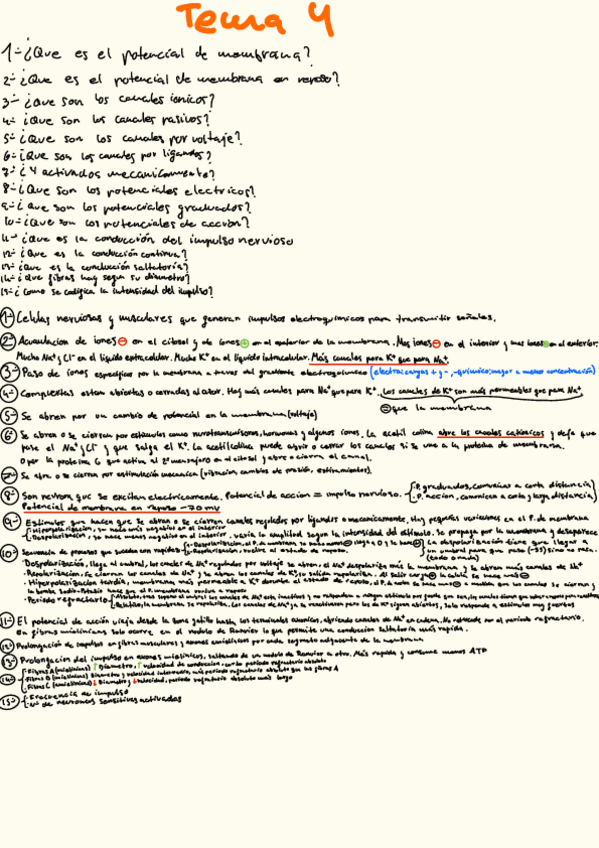 Tema 4
1- ¿Que es el potencial de membrana?
2- ¿Que es el potencial de membrana en reposo?
3- ¿Que son los canales ionicos?
4- ¿Que son los canales pasivos?
5- ¿Que son los canales por voltaje?
6- ¿Que son los canales por ligandos?
7- ¿Y activados mecanicamente?
8- ¿Que son los potenciales electricos?
9- ¿Que son los potenciales graduados?
10- ¿Que son los potenciales de acción?
11- ¿Que es la conducción del impulso nervioso
12- ¿Que es la conducción continua?
13- ¿Que es la conducción saltatoria?
14- ¿Que fibras hay segun su diametro?
15- ¿Como se codifica la intensidad del impulso?
1- Celulas nerviosas y musculares que generan impulsos electroquimicos para transmitir señales.
2- Acumulación de iones ⊖ en el citosol y de iones ⊕ en el exterior de la membrana. Mas iones ⊖ en el interior y mas iones ⊕ en el exterior.
Mucho Na⁺ y Cl⁻ en el liquido extracelular. Mucho K⁺ en el liquido intracelular. Mas canales para K⁺ que para Na⁺.
3- Paso de iones especificos por la membrana a traves del gradiente electroquimico (electro:cargas + y -, -quimico:mayor a menor concentración)
4- Compuertas estan abiertas o cerradas al azar. Hay más canales para Na⁺ que para K⁺. Los canales de K⁺ son más permeables que para Na⁺.
que la membrana
5- Se abren por un cambio de potencial en la membrana (voltaje)
6- Se abren o se cierran por estimulos como neurotransmisores, hormonas y algunos iones. La acetil colina abre los canales cationicos y deja que
pase el Na⁺ y Cl⁻ y que salga el K⁺. La acetilcolina puede abrir o cerrar los canales si se une a la proteina de membrana.
O por la proteina G que activa el 2º mensajero en el citosol y abre o cierra el canal.
7- Se abre o se cierran por estimulación mecanica (vibracion, cambios de presión, estiramientos).
8- Son nervios que se excitan electricamente. Potencial de accion = impulso nervioso. P. graduados, comunican a corta distancia
P. accion, comunican a corta y larga distancia
Potencial de membrana en reposo -70 mV
9- Estimulos que hacen que se abran o se cierran canales regulados por ligandos o mecanicamente. Hay pequeñas variaciones en el P. de membrana
Hiperpolarizacion, se hace más negativo en el interior
Despolarizacion, se hace menos negativo en el interior. varia la amplitud segun la intensidad del estimulo. Se propaga por la membrana y desaparece
10- Secuencia de procesos que suceden con rapidez
Repolarización, vuelve al estado de reposo.
La despolarización tiene que llegar a
un umbral para que pase (-55) sino no pasa.
(todo o nada)
Despolarización, llega al umbral, los canales de Na⁺ regulados por voltaje se abren, el Na⁺ despolariza más la membrana y se abren más canales de Na⁺
Repolarizacion, se cierran los canales de Na⁺ y se abren los canales de K⁺
Hiperpolarización tardia, membrana más permeable a K⁺ durante el estado de reposo.
la bomba Sodio-Potasio hace que el P. membrana vuelva a reposo
Periodo refractario
11- El potencial de accion viaja desde la zona gatillo hasta los terminales axonicos, abriendo canales de Na⁺ en cadena. No retrocede por el periodo refractario.
En fibras mielinicas solo ocurre en el nodulo de Ranvier lo que permite una conducción saltatoria más rapida.
12- Prolongación de impulsos en fibras musculares y axones amielinicos por cada segmento adyacente de la membrana
13- Prolongación del impulso en axones mielinicos, saltando de un nodulo de Ranvier a otro. Más rapido y consume menos ATP
14- Fibras A (mielinicas) ↑ Diametro, ↑ velocidad de conduccion, corto periodo refractario absoluto
Fibras B (mielinicas) Diametro y velocidad intermedia, más periodo refractario absoluto que las fibras A
Fibras C (amielinicas) ↓ Diametro y ↓ velocidad, periodo refractario absoluto más largo
15- Frecuencia de impulso
Nº de neuronas sensitivas activadas